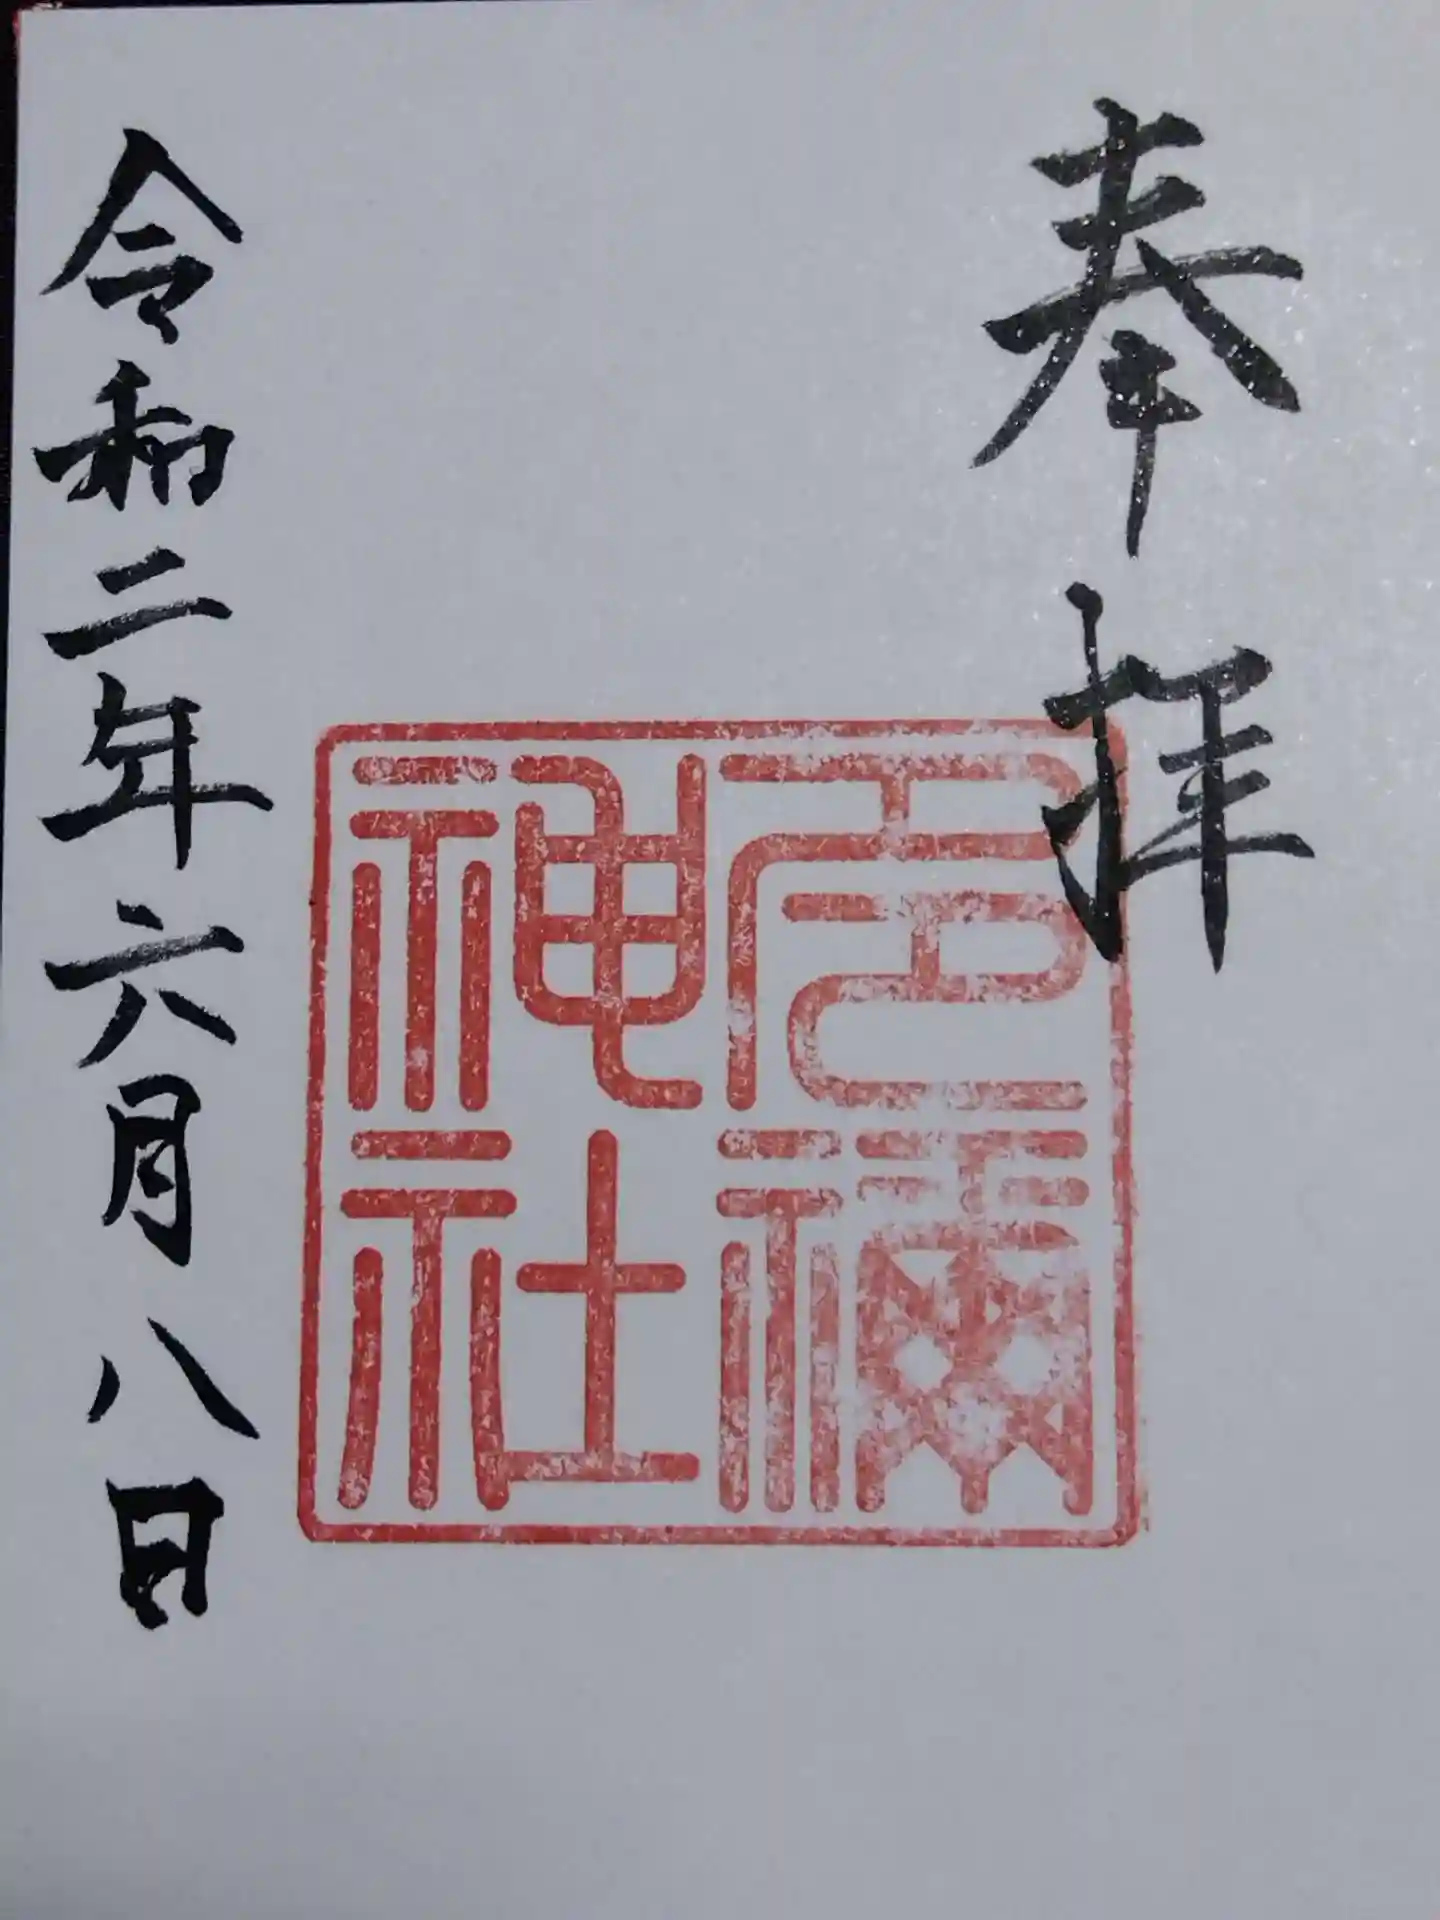 奉拝
禰
神社
令和二年六月八日